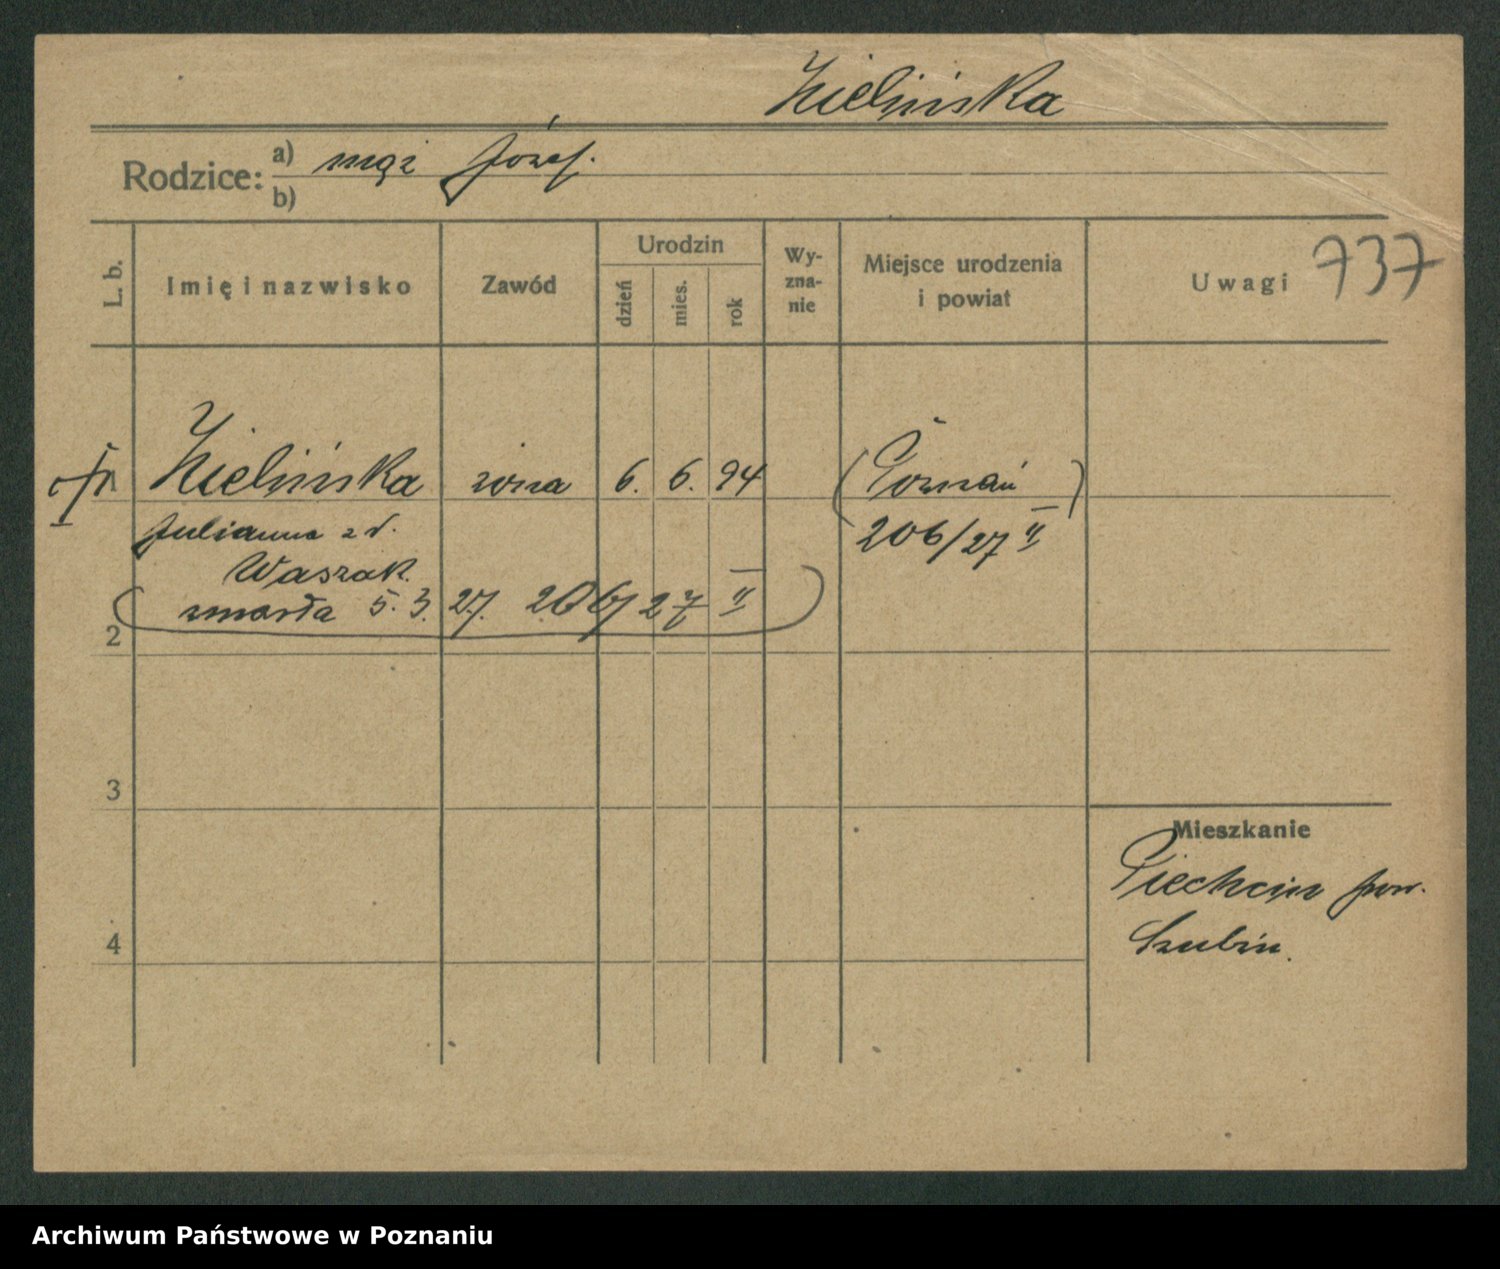 Zielińska
Rodzice: a) mąż Józef.
b)
L. b. Imię i nazwisko Zawód Urodzin dzień mies. rok Wy-zna-nie Miejsce urodzenia i powiat Uwagi 737
1 Zielińska żona 6. 6. 94 (Poznań)
Julianna z d. 206/27 II
Waszak
(zmarła 5. 3. 27. 206/27 II)
2
3
Mieszkanie
Piechcin pow.
4 Szubin.
Archiwum Państwowe w Poznaniu